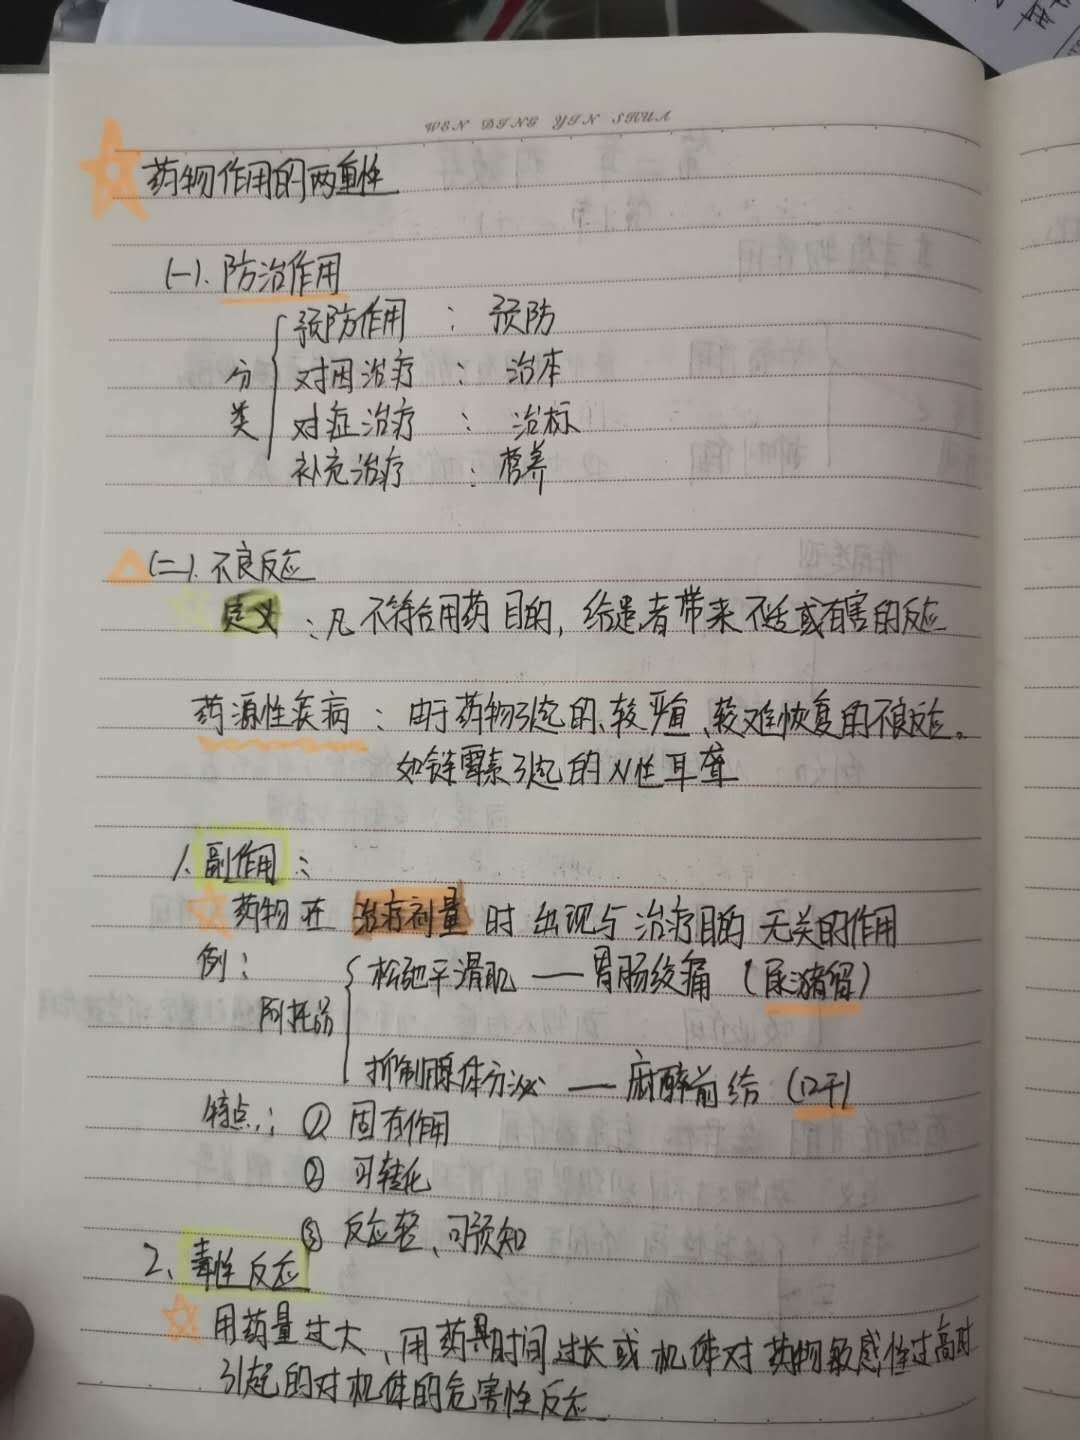 WEN DING YIN SHUA
药物作用的两重性
(一). 防治作用
分类
预防作用 : 预防
对因治疗 : 治本
对症治疗 : 治标
补充治疗 : 营养
(二). 不良反应
定义 : 凡不符合用药目的, 给患者带来不适或有害的反应
药源性疾病 : 由于药物引起的、较严重、较难恢复的不良反应。
如链霉素引起的N性耳聋
1、副作用 :
药物在 治疗剂量 时出现与治疗目的无关的作用
例 :
阿托品
松弛平滑肌 — 胃肠绞痛 (尿潴留)
抑制腺体分泌 — 麻醉前给 (口干)
特点 : ① 固有作用
② 可转化
③ 反应轻、可预知
2、毒性反应
用药量过大、用药时间过长或机体对药物敏感性过高时
引起的对机体的危害性反应